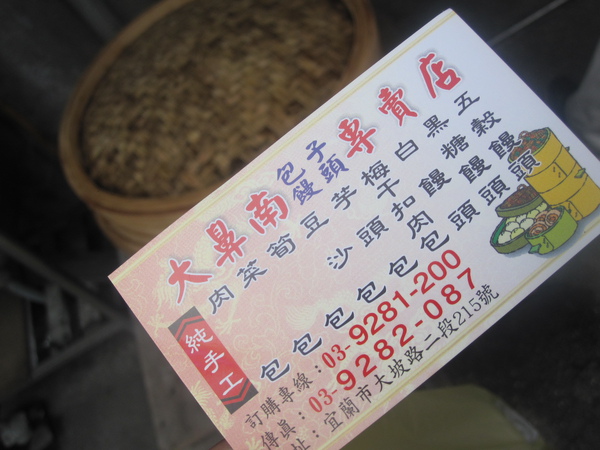 大鼻南
包子
饅頭
專賣店
肉包
菜包
筍包
豆沙包
芋頭包
梅干扣肉包
白饅頭
黑糖饅頭
五穀饅頭
純手工
訂購專線：03-9281-200
傳眞：03-9282-087
址：宜蘭市大坡路二段215號